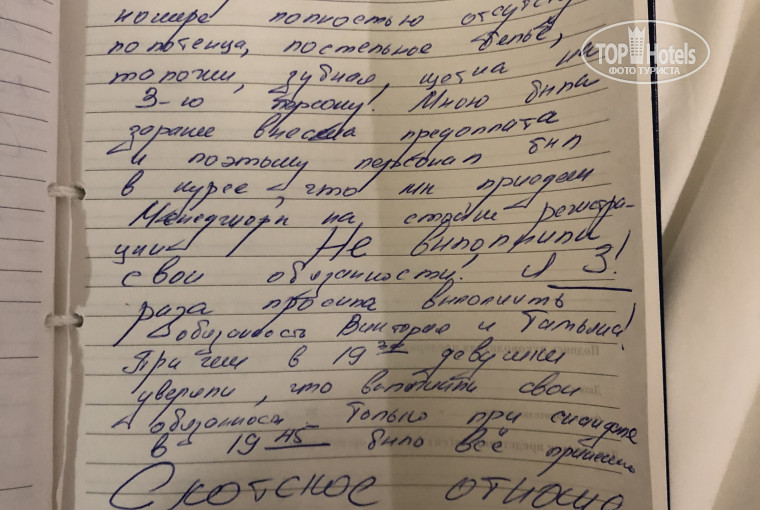 номере полностью отсутств
полотенца, постельное бельё,
тапочки, зубная, щетка на
3-ю персону! Мною была
заранее внесена предоплата
и поэтому персонал был
в курсе, что мы приедем
Менеджоры на стойке регистра-
ции Не выполнили
свои обязанности!, и 3!
раза просила выполнить
обязанность Викторию и Татьяна!
При чем в 19 30 девушки
уверели, что выполнити свои
обязанност только при скандале
в 19 45 было всё принесено
Скотское отноше
TOP Hotels
ФОТО ТУРИСТА